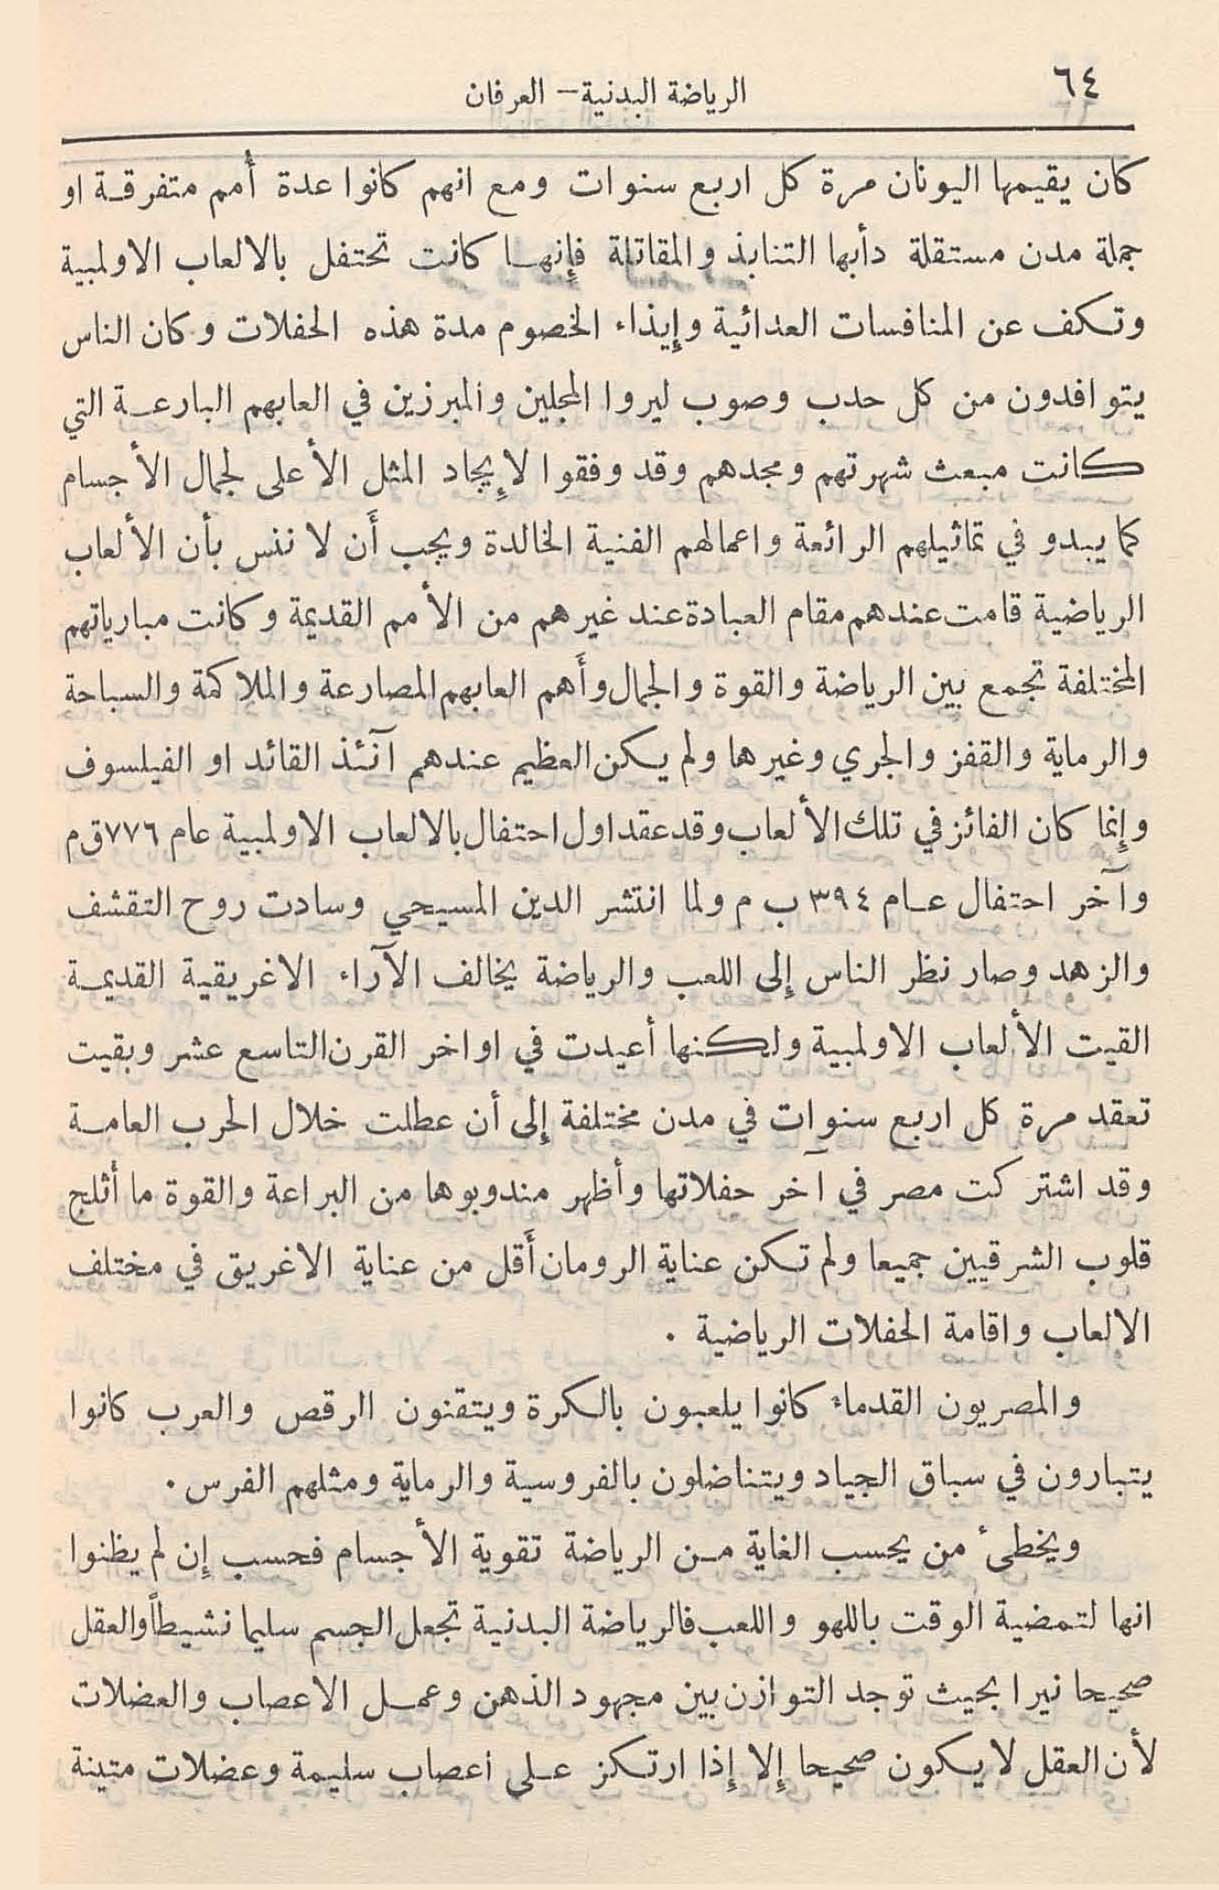 ٦٤
الرياضة البدنية – العرفان
كان يقيمها اليونان مرة كل اربع سنوات ومع انهم كانوا عدة أمم متفرقة او
جملة مدن مستقلة دأبها التنابذ والمقاتلة فإنها كانت تحتفل بالالعاب الاولمبية
وتكف عن المنافسات العدائية وإيذاء الخصوم مدة هذه الحفلات وكان الناس
يتوافدون من كل حدب وصوب ليروا المجلين والمبرزين في العابهم البارعة التي
كانت مبعث شهرتهم ومجدهم وقد وفقوا لإيجاد المثل الأعلى لجمال الأجسام
كما يبدو في تماثيلهم الرائعة واعمالهم الفنية الخالدة ويجب أن لا ننس بأن الألعاب
الرياضية قامت عندهم مقام العبادة عند غيرهم من الأمم القديمة وكانت مبارياتهم
المختلفة تجمع بين الرياضة والقوة والجمال وأهم العابهم المصارعة والملاكمة والسباحة
والرماية والقفز والجري وغيرها ولم يكن العظيم عندهم آنئذ القائد او الفيلسوف
وإنما كان الفائز في تلك الألعاب وقد عقد اول احتفال بالالعاب الاولمبية عام ٧٧٦ ق م
وآخر احتفال عام ٣٩٤ ب م ولما انتشر الدين المسيحي وسادت روح التقشف
والزهد وصار نظر الناس إلى اللعب والرياضة يخالف الآراء الاغريقية القديمة
القيت الألعاب الاولمبية ولكنها أعيدت في اواخر القرن التاسع عشر وبقيت
تعقد مرة كل اربع سنوات في مدن مختلفة إلى أن عطلت خلال الحرب العامة
وقد اشتركت مصر في آخر حفلاتها وأظهر مندوبوها من البراعة والقوة ما أثلج
قلوب الشرقيين جميعا ولم تكن عناية الرومان أقل من عناية الاغريق في مختلف
الالعاب واقامة الحفلات الرياضية .
والمصريون القدماء كانوا يلعبون بالكرة ويتقنون الرقص والعرب كانوا
يتبارون في سباق الجياد ويتناضلون بالفروسية والرماية ومثلهم الفرس .
ويخطئ من يحسب الغاية من الرياضة تقوية الأجسام فحسب إن لم يظنوا
انها لتمضية الوقت باللهو واللعب فالرياضة البدنية تجعل الجسم سليما نشيطاً والعقل
صحيحا نيرا بحيث توجد التوازن بين مجهود الذهن وعمل الاعصاب والعضلات
لأن العقل لا يكون صحيحا إلا إذا ارتكز على اعصاب سليمة وعضلات متينة